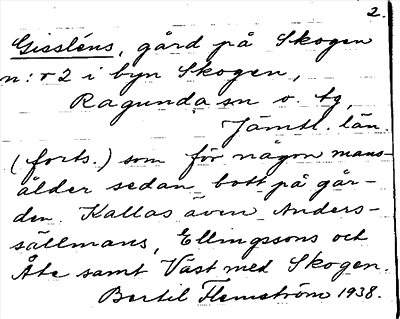 2.
Gissléns, gård på Skogen
n:r 2 i byn Skogen,
Ragunda sn o. tg,
Jämtl. län
(forts.) som för någon mans-
ålder sedan bott på går-
den. Kallas även Anders-
sällmans, Ellingssons och
Åte samt Väst med Skogen.
Bertil Flemström 1938.